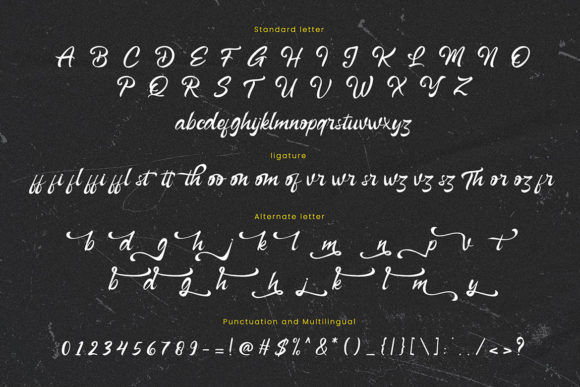 Standard letter
A B C D E F G H I J K L M N O
P Q R S T U V W X Y Z
abcdefghijklmnopqrstuvwxyz
ligature
ff fi fl ffi ffl st tt th oo on om of vr wr sr wz vz sz Th or oz fr
Alternate letter
b d g h j k l m n p v t
b d g h j k l m y
Punctuation and Multilingual
0123456789-=!@#$%^&*()_{|}[\]:¨../<>?